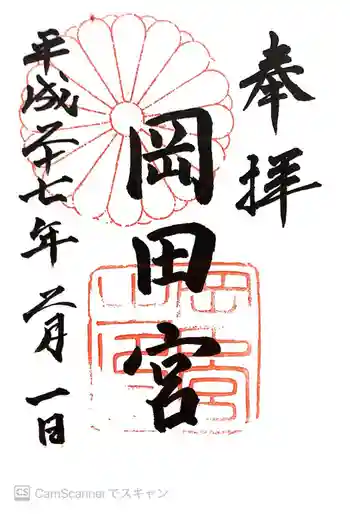 奉拝
岡田宮
平成二十七年二月一日
CS CamScanner でスキャン